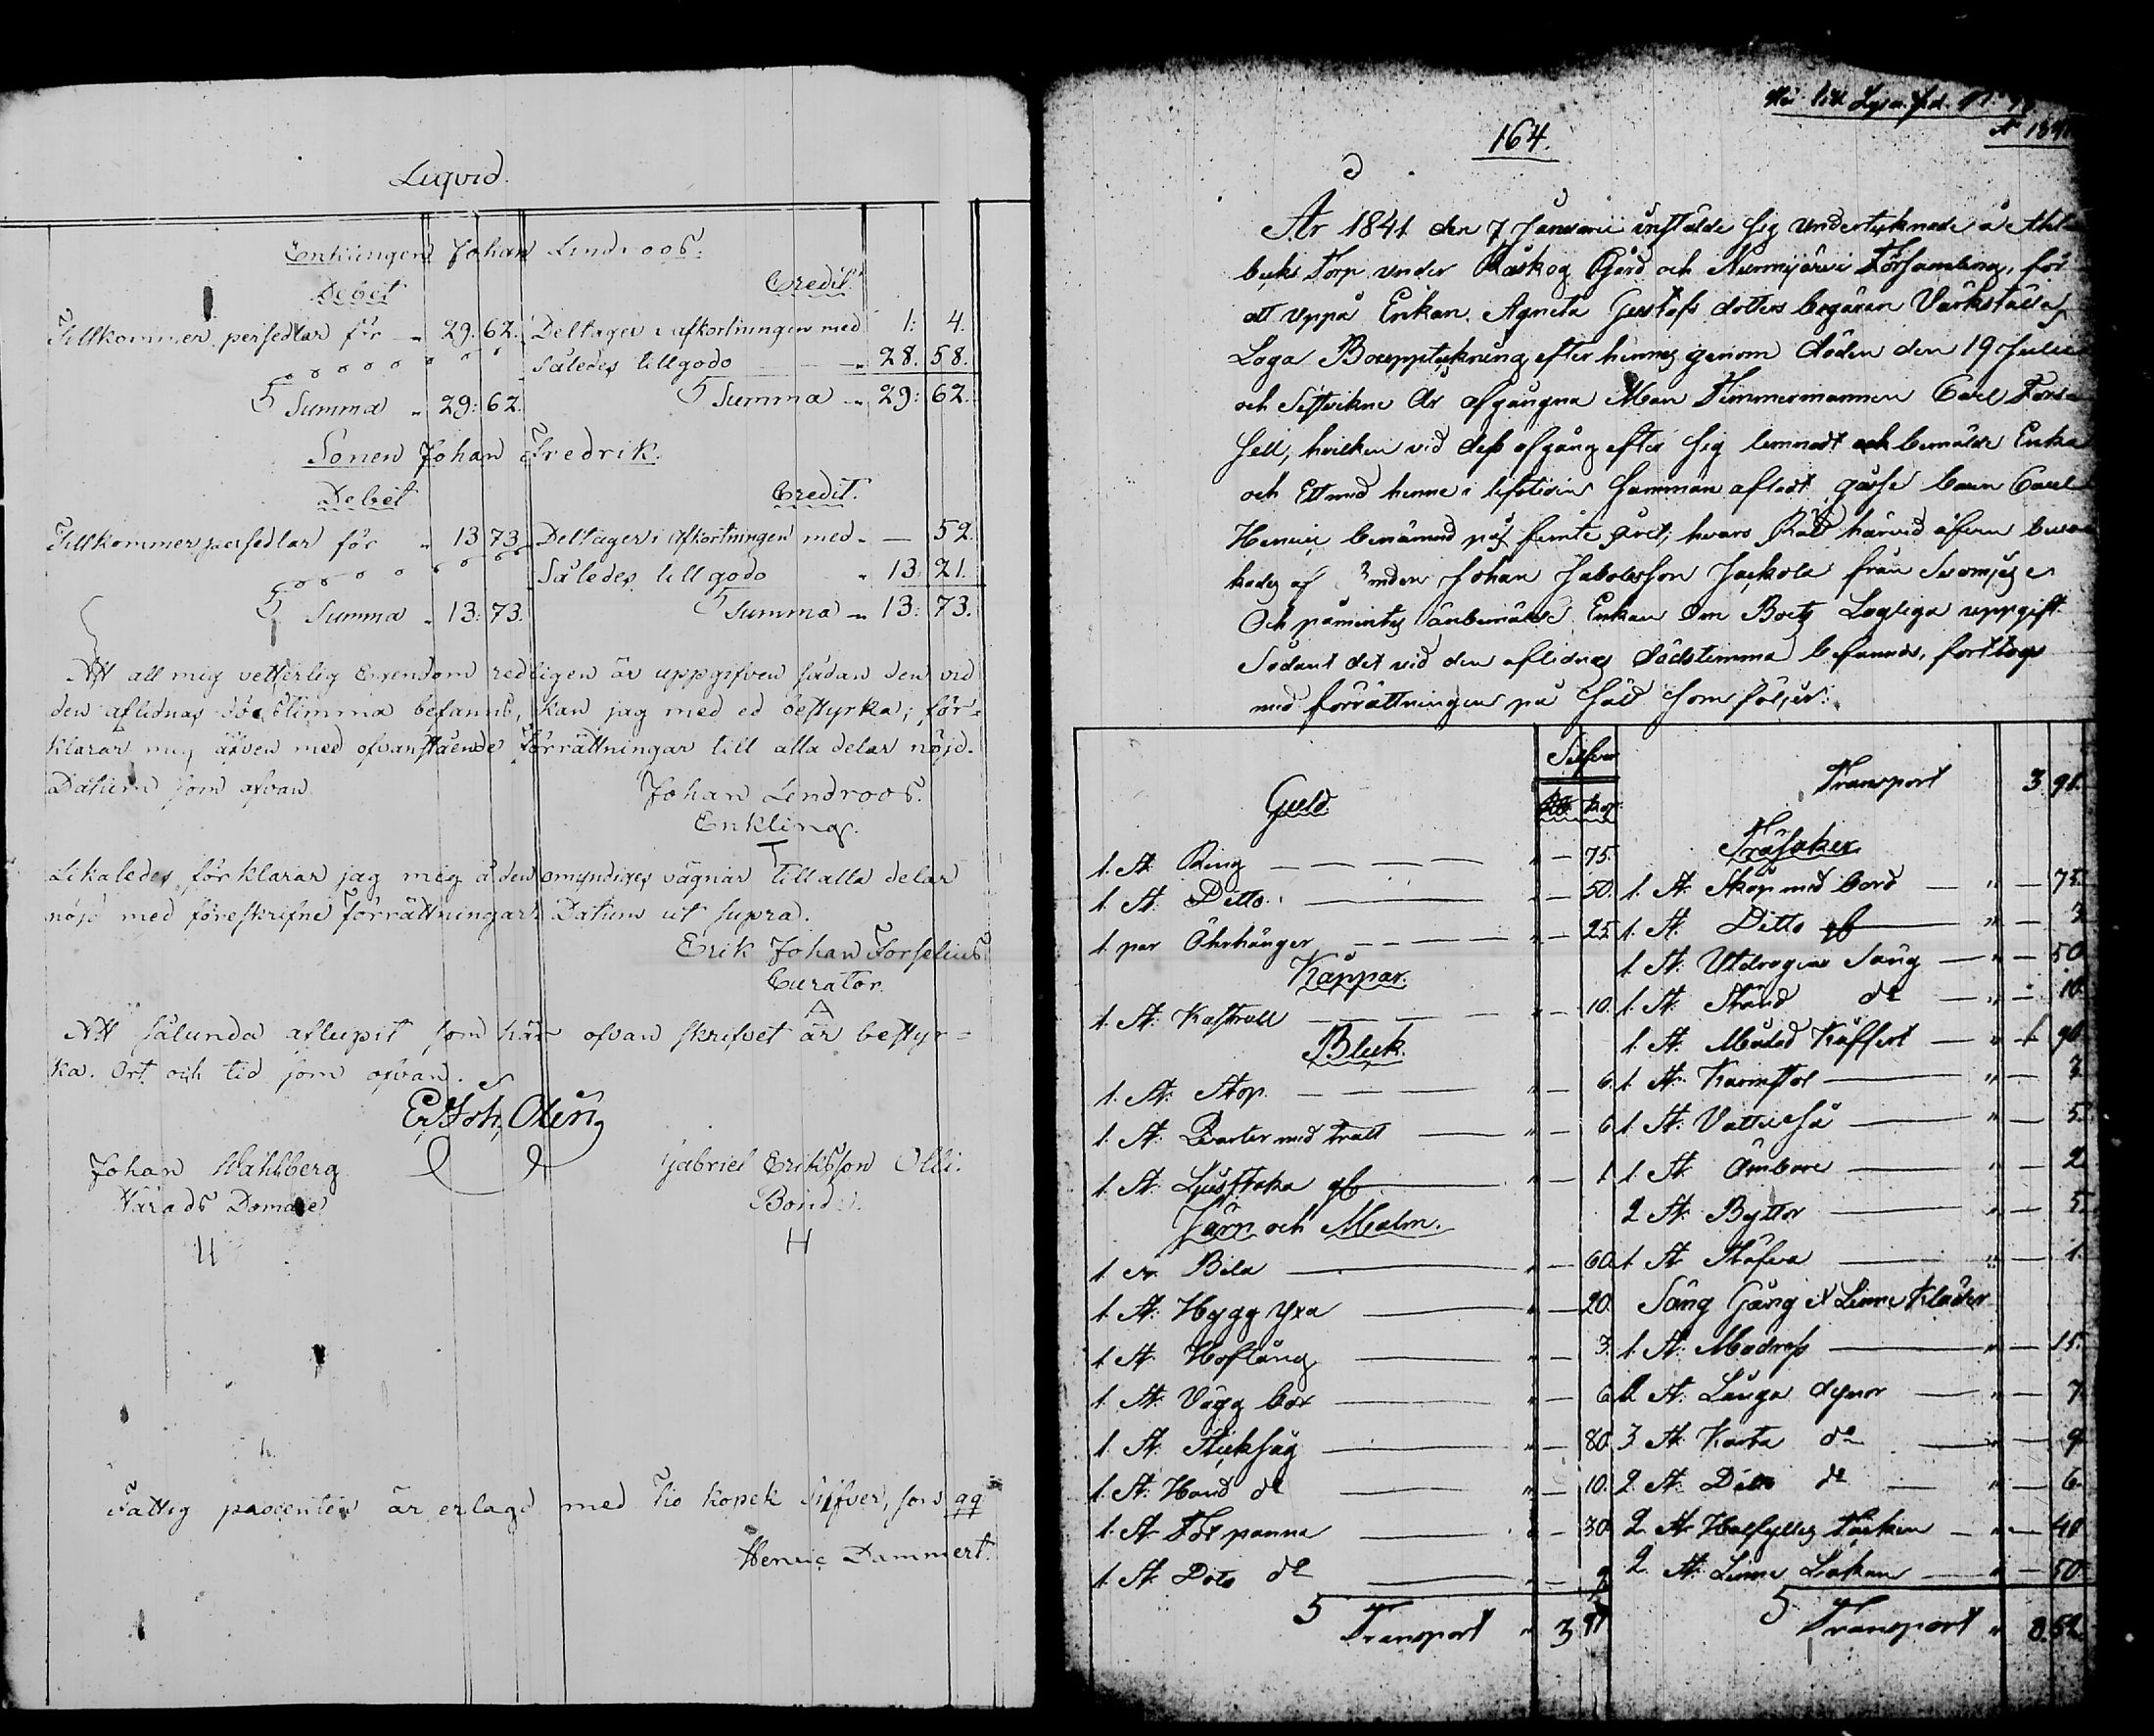 Liqvid.
Enklingen Johan Lindroos.
Debet
Credit.
Tillkommer persedlar för " 29: 62. Deltager i afkortningen med 1: 4.
Således tillgodo " 28. 58.
Summa " 29: 62. Summa " 29: 62.
Sonen Johan Fredrik.
Debet
Credit.
Tillkommer persedlar för " 13 73 Deltager i afkortningen med " — 52.
Således till godo " 13 21.
Summa " 13: 73. Summa " 13: 73.
Att all mig vetterlig Egendom redligen är uppgifven sådan den vid
den aflidnas dödstimma befanns, kan jag med ed bestyrka; för=
klarar mig äfven med ofvanstående förrättningar till alla delar nöjd.
Datum som ofvan.
Johan Lindroos.
Enkling.
Likaledes förklarar jag mig å den omyndiges vägnar till alla delar
nöjd med föreskrifne förrättningar. Datum ut supra.
Erik Johan Forselius
Curator.
Att sålunda aflupit som här ofvan skrifvet är bestyr=
ka. Ort och tid som ofvan.
Er. Joh. Olin
Johan Wahlberg Gabriel Eriksson Olli.
Härads Domare Bonde.
H
Fattig procenten är erlagd med Tio kopek Silfver, som qq
Henric Dammert.
164.
År 1841 den 7 Januarii instälde sig undertecknade å
becks Torp under Råskog Gård och Nurmijärvi Församling, för
att uppå Enkan Agneta Gustafs dotters begäran Värkställa
Laga Bouppteckning efter hennes genom döden den 19 Julii
och Sistvikne År afgångna Man Timmermannen Carl
sell, hvilken vid dess afgång efter sig lemnadt bemälde Enka
och Ett med henne i lifstiden samman afladt gosse barn Carl
Henric benämnd på femte året; hvars Rätt härvid äfven beva
kades af Johan Jakobsson Jackola från
Och påmintes anbemälde Enkan Om Boets Lagliga uppgift
Sådant det vid den aflidnes dödstimma befanns, forttogs
med förrättningen på Sätt som följer:
Silfver
Guld. Rbl. Kop. Transport 3 98.
1. St. Ring " — 75. Träsaker
1. St. Ditto " — 50. 1. St. Skåp med bord " — 75.
1 par Öhrhänger " — 25 1. St. Ditto " — 3
Kåppar. 1 St. Utdragen Säng " — 50
1. St. Kastrull " — 10. 1. St. Stånd do " — 10.
Bleck. 1 St. Målad Kåffert
1. St. Stop " — 6. 1. St. Karmstol " — 3
1. St. Qvarter med tratt " — 6 1. St. Vatten Så " — 5.
1. St. Ljusstaka " — 1 1. St. Ämbare " — 2
Järn och Malm. 2 St. Byttor " — 5
1 St. Bila " — 60. 1. St. Stäfva " — 1.
1 St. Hygg yxa " — 20. Säng Gång et Linne Kläder
1 St. Hoftång " — 3. 1. St. Madrass " — 15.
1. St. Vägg bår " — 6 2 St. Långa dynor " — 7
1. St. Sticksåg " — 80. 3 St. Korta do " — 9
1. St. Hand do " — 10. 2. St. Ditto do " — 6.
1. St. panna " — 30 2 St. Halfyllis Täcken " — 40
1. St. Dito do " — 9 2 St. Linne Lakan " — 50
Transport " 3 98 Transport " 8.52